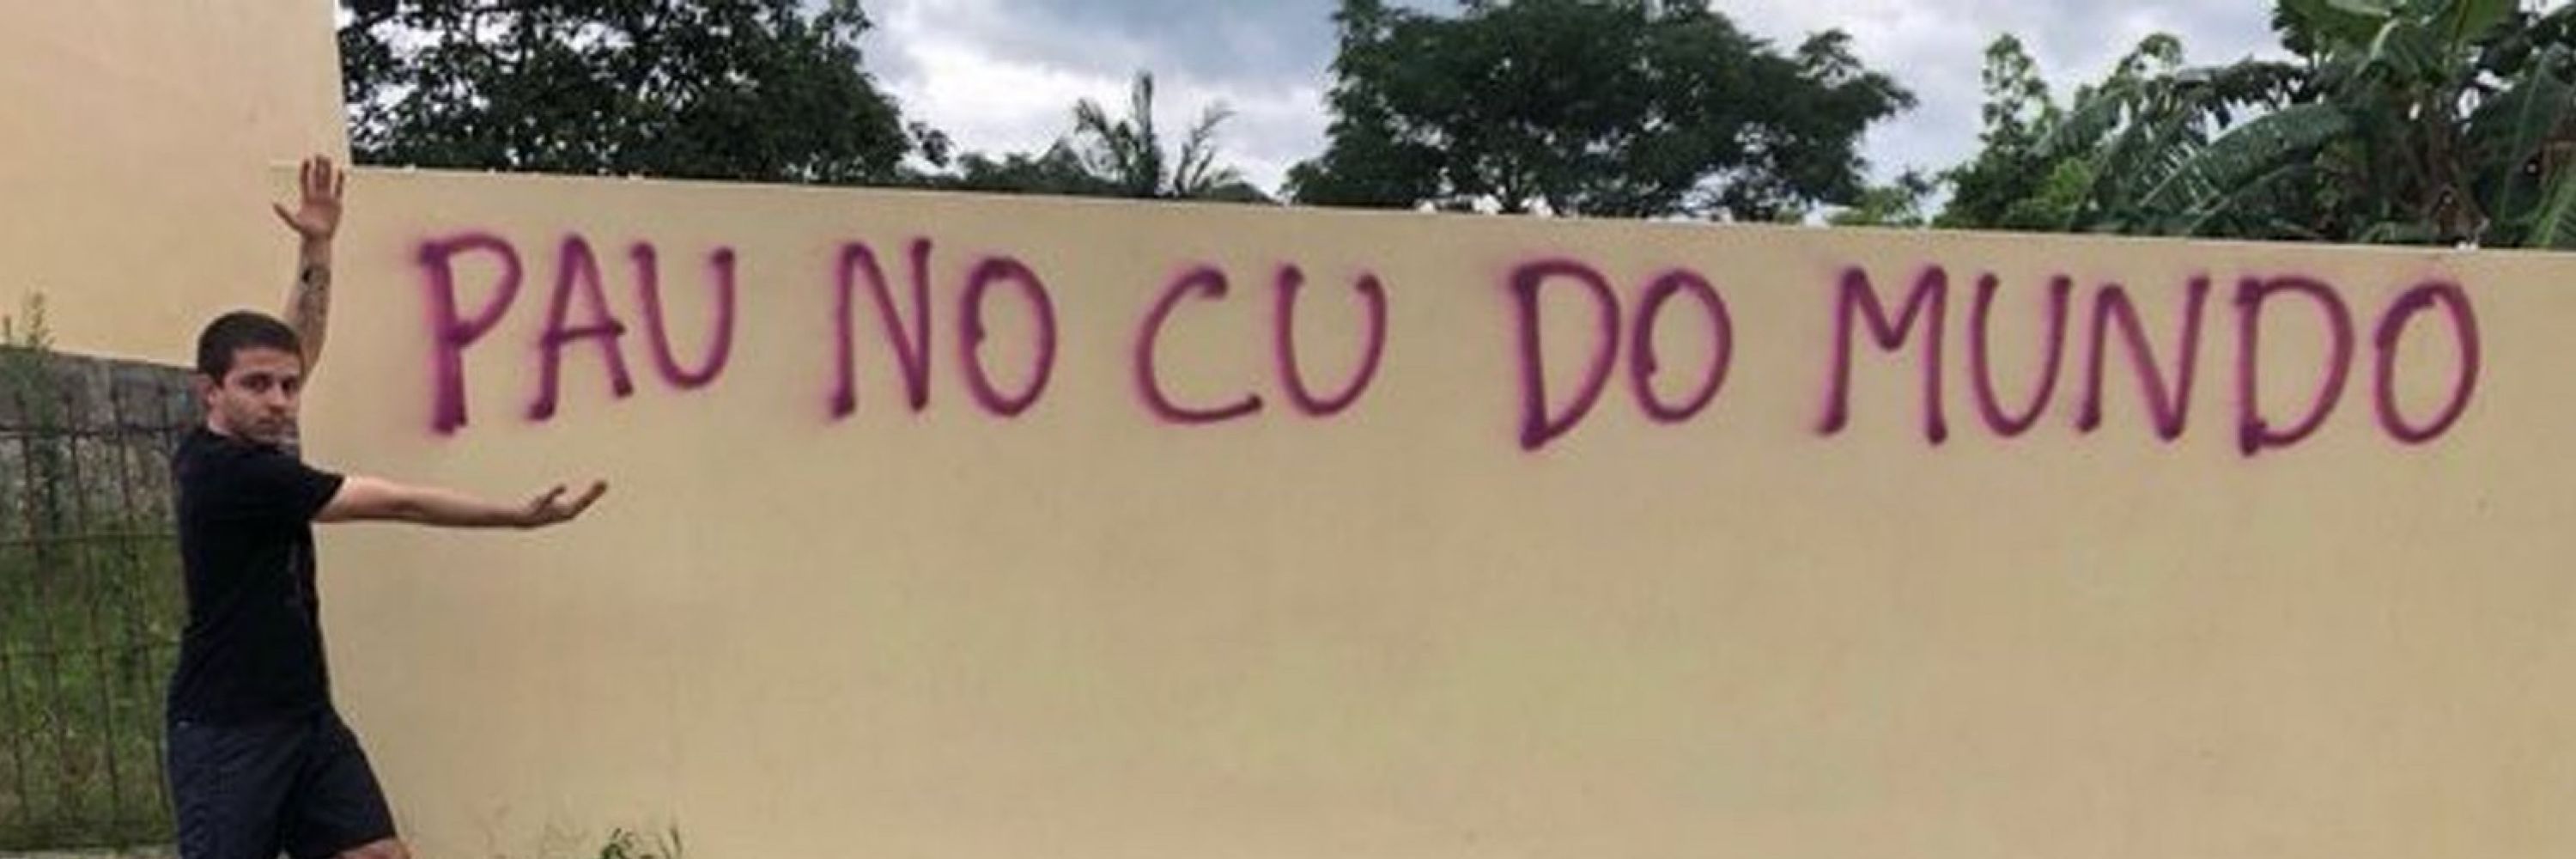 PAU NO CU DO MUNDO